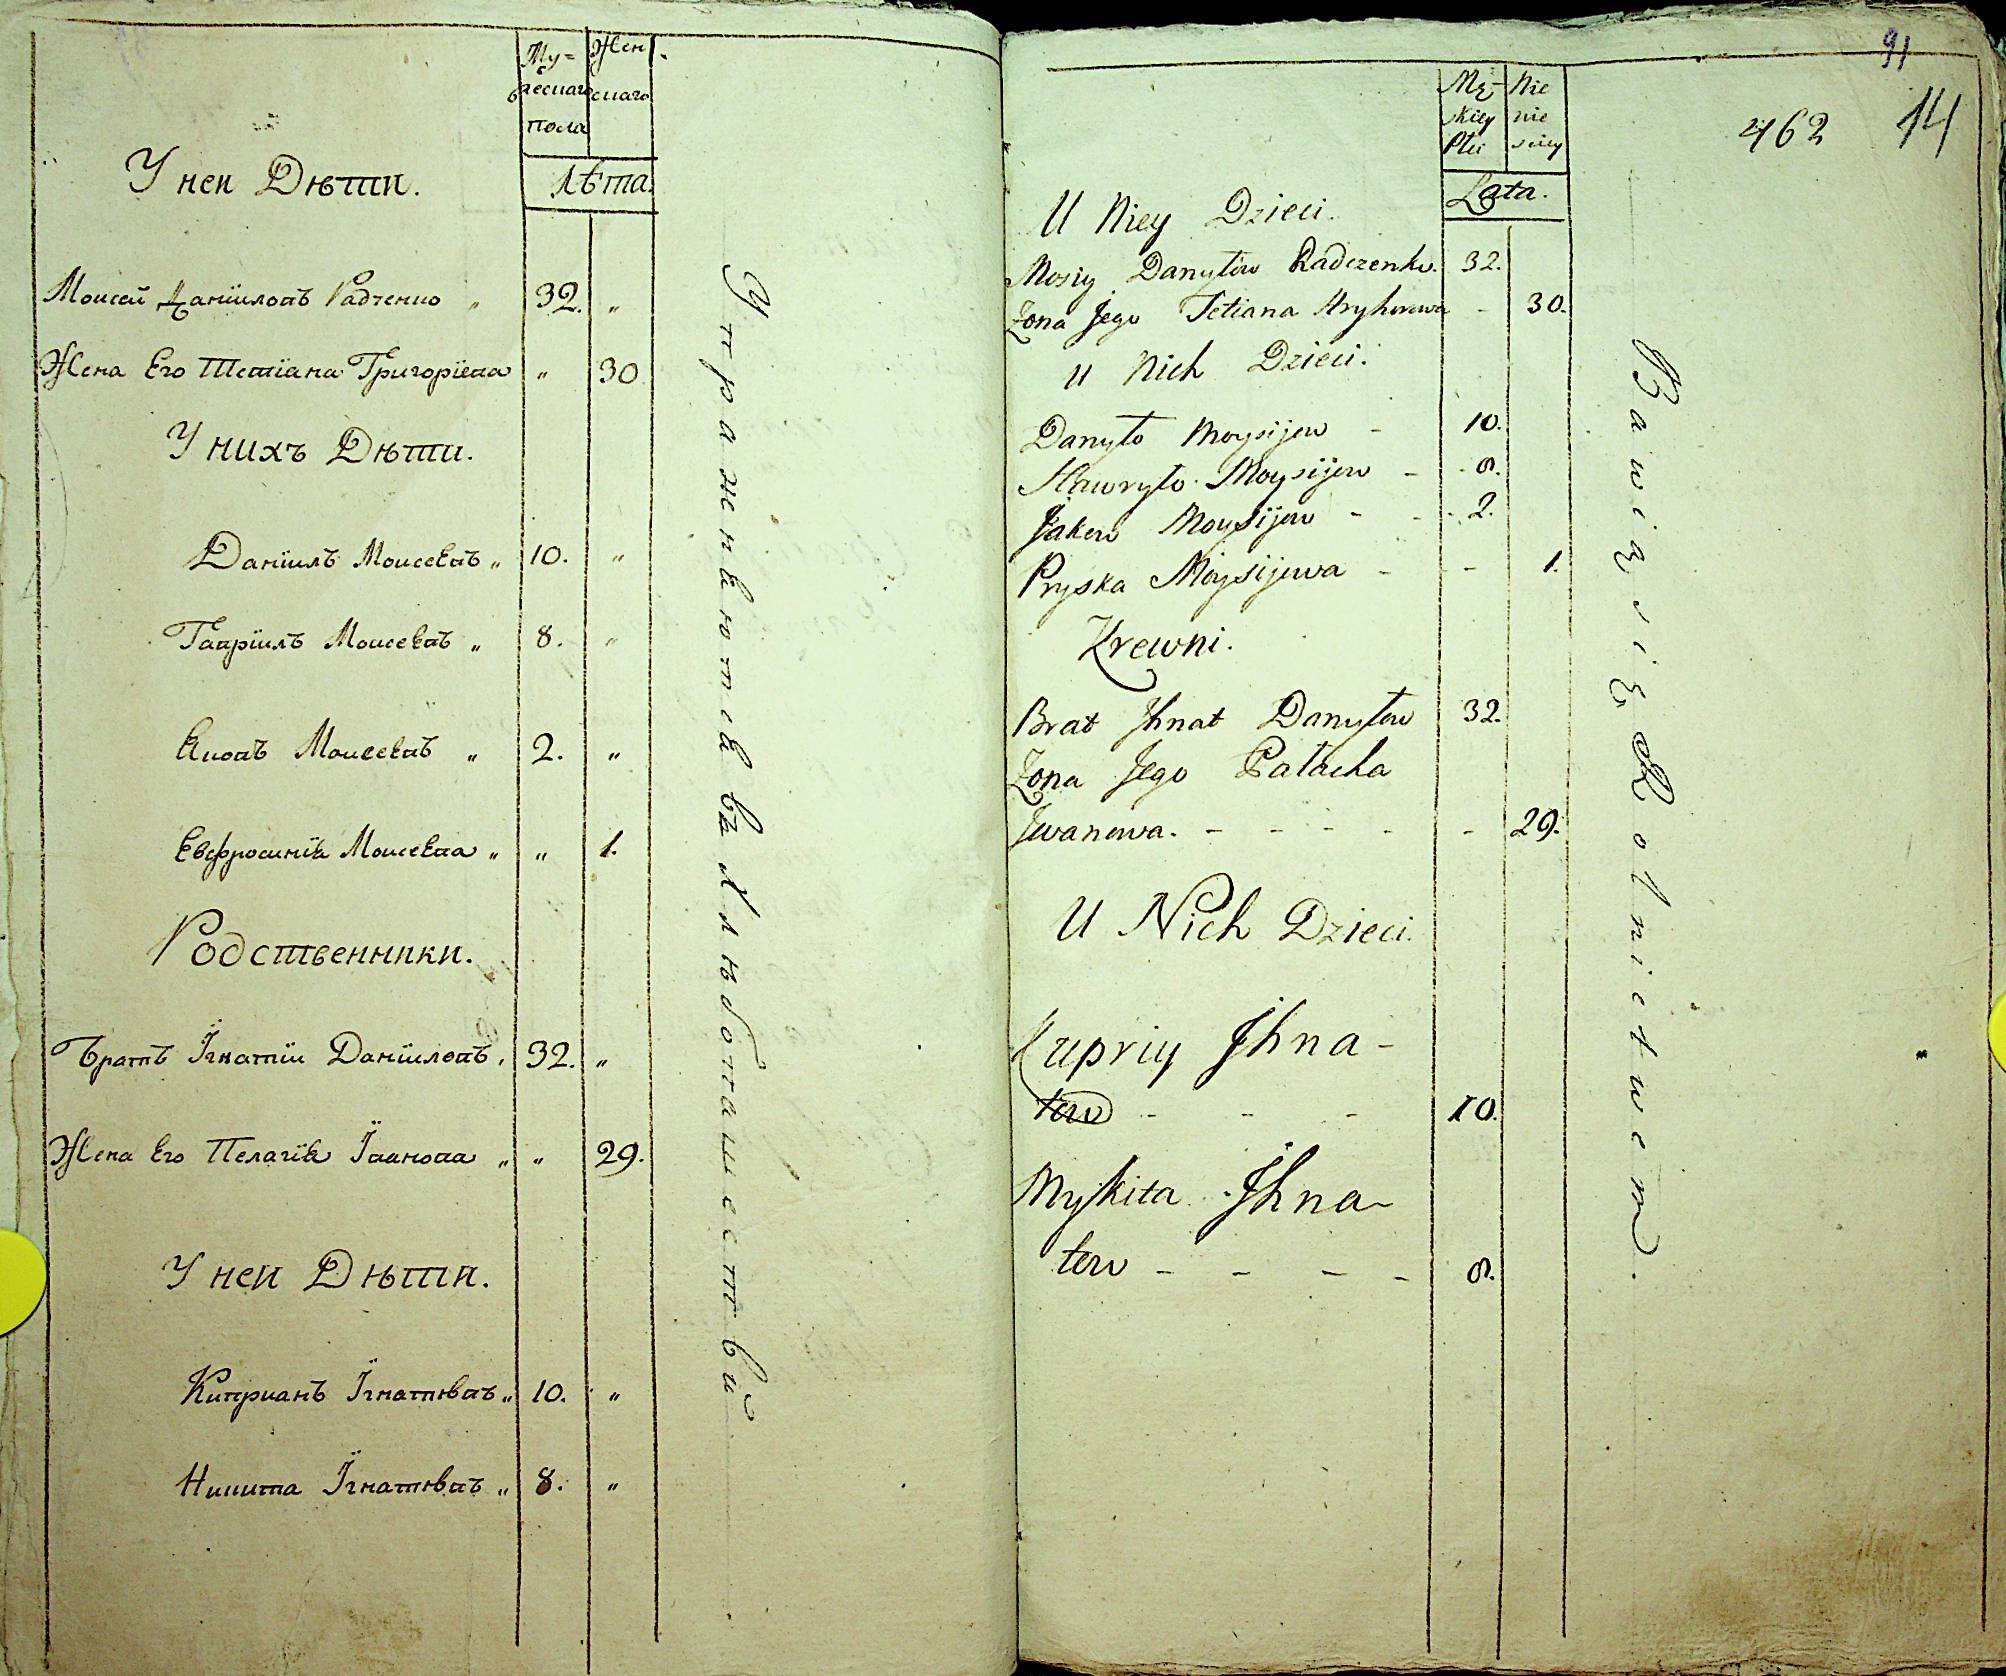 Му=
жескаго
пола
Жен
скаго
Лѣта.
У неи Дѣти.
Моисей Даніиловъ Радченко „ 32. „
Жена Его Тетіана Григоріева „ 30
У нихъ Дѣти.
Даніилъ Моисеевъ „ 10. „
Гавріилъ Моисеевъ „ 8. „
Яковъ Моисеевъ „ 2. „
Евфросинія Моисеева „ „ 1.
Родственники.
Братъ Їгнатіи Даніиловъ „ 32. „
Жена Его Пелагія Їванова „ „ 29.
У неи Дѣти.
Кипріанъ Їгнатѣвъ „ 10. „
Никита Їгнатѣвъ „ 8. „
Упражняются въ хлѣбопашествѣ
91
462 14
Mę-
skiey
Płci
Nie
nie
skiey
Lata.
U Niey Dzieci.
Mosiy Danyłów Radczenko. 32.
Zona Jego Tetiana Hryhorowa - 30.
U Nich Dzieci.
Danyło Moysijew - 10.
Hawryło Moysijew - - 8.
Jakew Moysijew - - - 2.
Pryska Moysijewa - - 1.
Krewni.
Brat Jhnat Danyłow 32.
Zona Jego Pałacha
Jwanowa. - - - - - 29.
U Nich Dzieci.
Kupriy Jhna-
tew - - - 10.
Mykita Jhna-
tew - - - - 8.
Bawią się Rolnictwem.